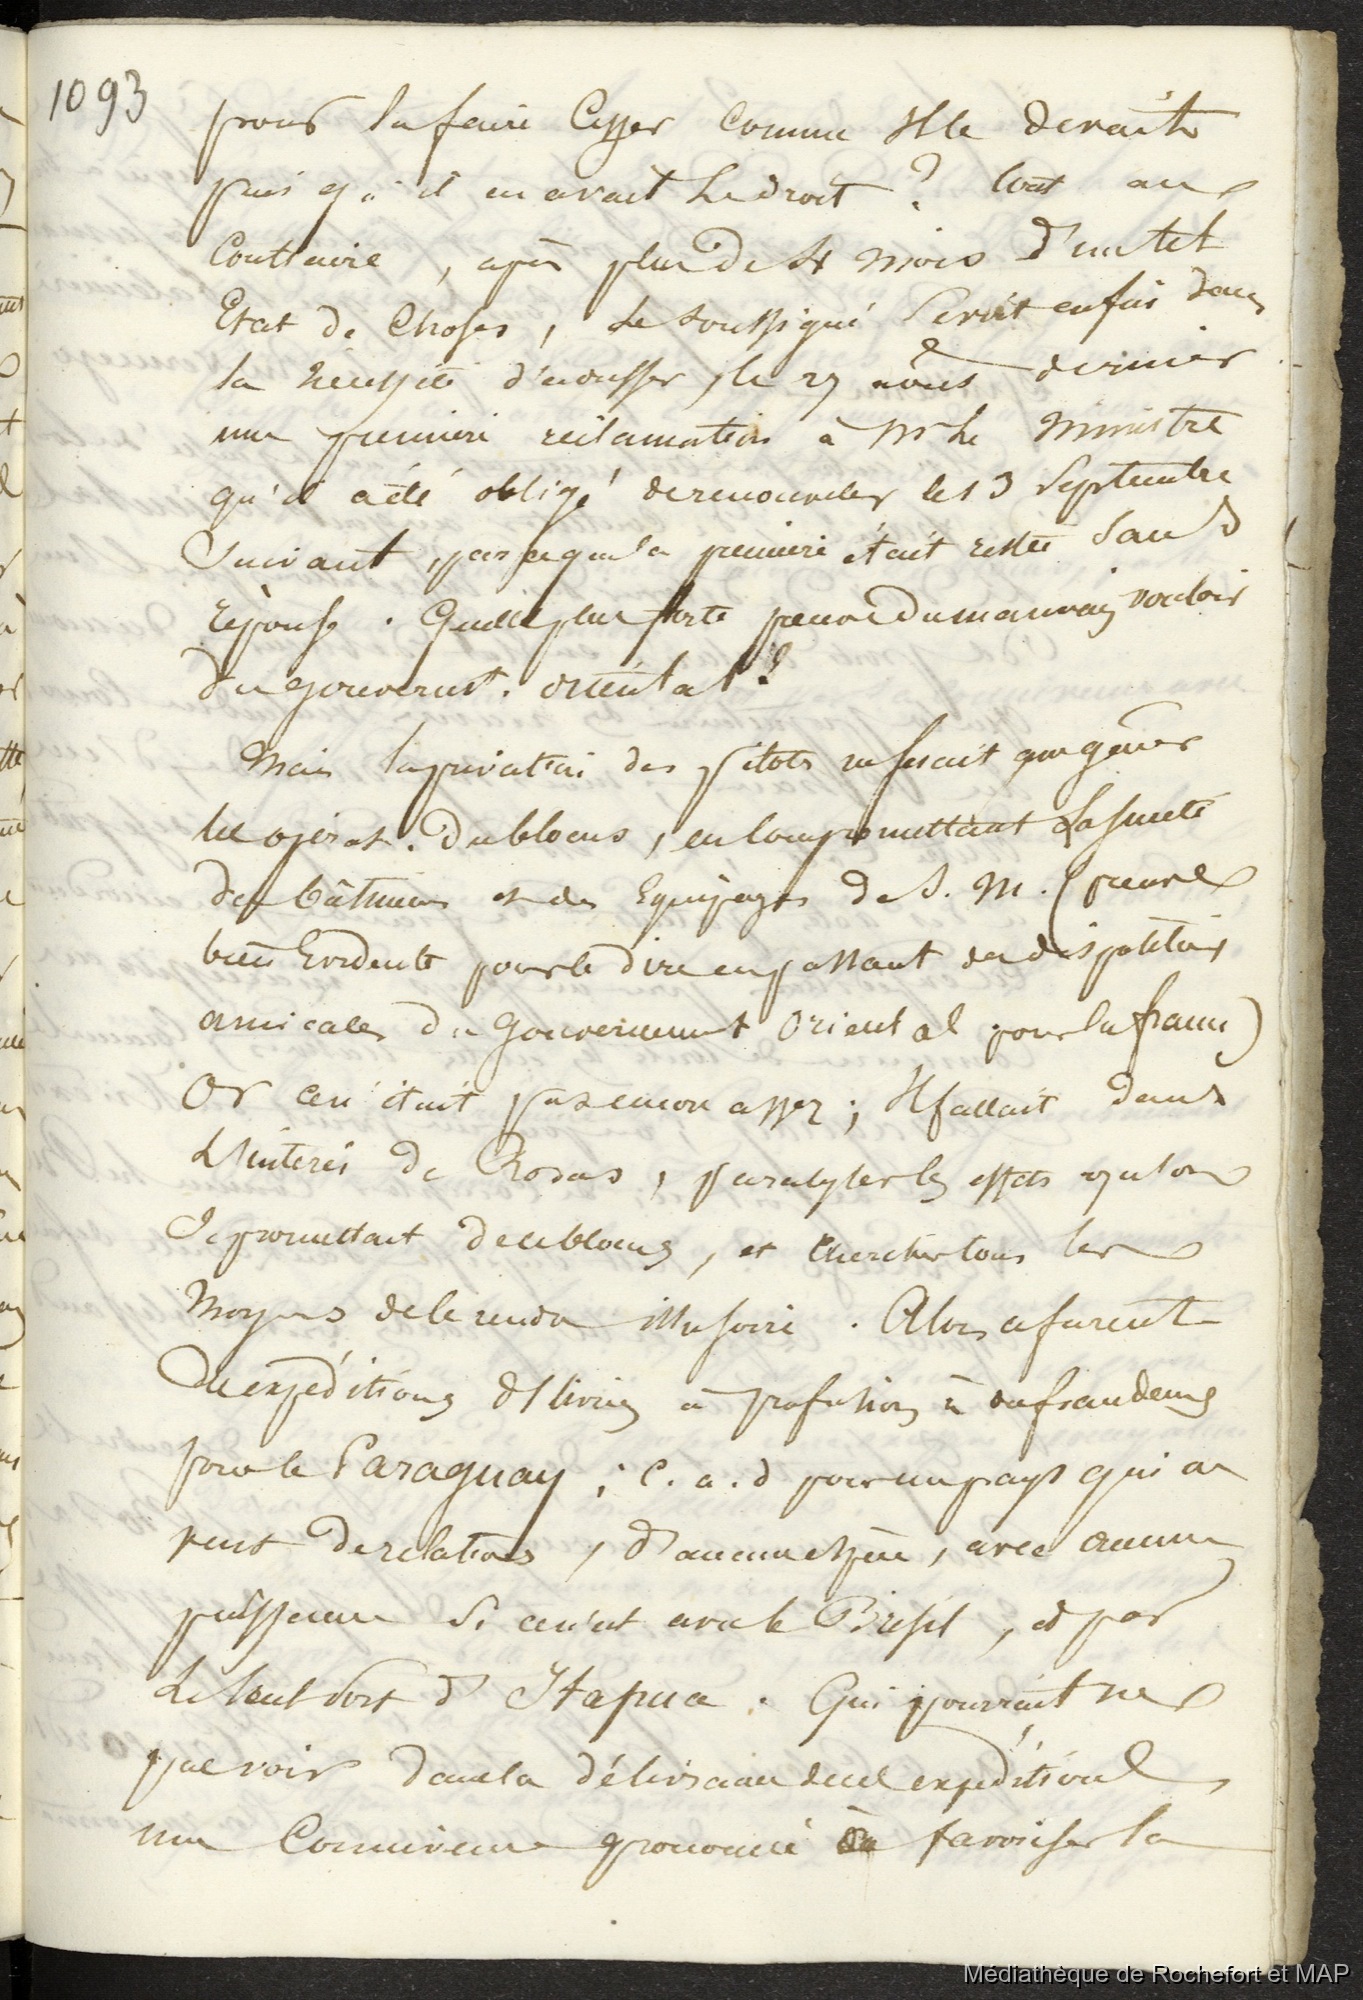 1093
pour la faire Cesser comme Il le devait
puis qu'il en avait Le droit ? tout au
Contraire, après plus de 4 mois d'un tel
Etat de Choses, Le soussigné Se vit enfin dans
la nécessité d'adresser, le 27 août dernier
une première réclamation à Mr Le Ministre
qu'il a été obligé de renouveler le 13 Septembre
Suivant, parce que la première était restée Sans
réponse. Quelle plus forte preuve du mauvais vouloir
du gouvernt. oriental ?
Mais la privation des pilots ne faisait que gêner
les opérat. du blocus, en compromettant La sureté
des bâtimens et des Equipages de S. M. (preuve
bien Evidente pour le dire en passant des dispositions
amicales du Gouvernement Oriental pour la france)
Or ce n'était pas encore assez ; Il fallait dans
L'intérêt de Rosas, paralyser les effets qu'on
Se promettait de ce blocus, et chercher tous les
Moyens de le rendre illusoire. Alors ce furent
Des expéditions délivrées à profusion à des fraudeurs
pour le Paraguay ; C. a. d pour un pays qui ne
veut de relations, d'aucune espèce, avec aucune
puissance Si ce n'est avec le Brésil, et par
Le seul Port d'Itapua. Qui pourrait ne
pas voir dans la délivrance de ces expéditions,
une Connivence prononcée à favoriser la
Médiathèque de Rochefort et MAP